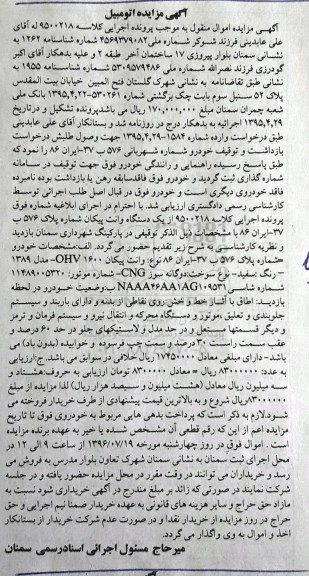 آگهی مزایده اتومبیل
آگهی مزایده اموال منقول به موجب پرونده اجرایی کلاسه ۹۵۰۰۲۱۸ له آقای
علی عابدینی فرزند شکر شماره ملی ۴۵۶۹۳۷۹۰۸۲ شماره شناسنامه ۱۲۶۲ به
نشانی سمنان بلوار پیروزی ۱۷ ساختمان آخر طبقه ۲ و علیه بدهکار آقای اکبر
گودرزی فرزند نصرالله شماره ملی ۵۳۰۹۵۷۹۴۸۶ شماره شناسنامه ۱۹۵۵ به
نشانی طبق تقاضانامه به نشانی شهرک گلستان فتح المبین خیابان بیت المقدس
پلاک ۵۲ سنبل سوم بابت چک برگشتی شماره ۵۳۰۲۶۱-۱۳۹۵,۴,۲۲ بانک ملی
شعبه چمران سمنان مبلغ ۱۷۰,۰۰۰,۰۰۰ ریال می باشد پرونده تشکیل و در تاریخ
۱۳۹۵,۴,۲۹ اجرائیه به بدهکار درج در روزنامه شد و بستانکار آقای علی عابدینی
طبق درخواست وارده شماره ۱۵۸۴-۱۳۹۵,۴,۲۹ جهت وصول طلبش درخواست
بازداشت و توقیف خودرو شماره شهربانی ۵۷۶ ب ۳۷-ایران ۸۶ را نمود که
طبق پاسخ رسیده راهنمایی و رانندگی خودرو فوق جهت توقیف در سامانه
شماره گذاری ثبت گردید و خودرو فوق فاقد سابقه رهن یا بازداشت بوده نامبرده
فاقد خودروی دیگری است و خودرو فوق در قبال اصل طلب اجرائی توسط
کارشناسی رسمی دادگستری ارزیابی شد. با احترام در اجرای ابلاغیه شماره فوق
پرونده اجرایی کلاسه ۹۵۰۰۲۱۸ از یک دستگاه وانت پیکان شماره پلاک ۵۷۶ ب
۳۷-ایران ۸۶ با مشخصات ذیل الذکر توقیفی در پارکینگ شهرداری سمنان بازدید
و نظریه کارشناسی به شرح زیر تقدیم حضور می گردد. الف: مشخصات خودرو
شماره پلاک ۵۷۶ ب ۳۷-ایران ۸۶ نوع: وانت پیکان ۱۶۰۰ OHV- مدل ۱۳۸۹
– رنگ سفید – نوع سوخت: دوگانه سوز CNG- شماره موتور: ۱۱۴۸۹۰۰۵۳۲۰
شماره شاسی: NAAA۴۶AA۱AG۱۰۹۵۳۱ ب: وضعیت خودرو در لحظه
بازدید: اطاق با آثار خط و خش روی نقاطی از بدنه و دارای باربند و سیستم
جلوبندی و تعلیق ،موتور و دستگاه محرکه و انتقال نیرو و سیستم فرمان و ترمز
و دیگر قسمتها مستعمل و در حد مدل و لاستیکهای جلو در حد ۶۰ درصد و
عقب سمت راست ۳۰ درصد و سمت چپ فرسوده و خوابیده (بدون باد) می
باشد- دارای مبلغی معادل ۱۷۴۵۰۰۰۰ ریال خلافی در سوابق می باشد. ج: ارزیابی
به عدد: ۸۳۰۰۰۰۰۰ ریال = معادل ۸۳۰۰۰۰۰ تومان ارزیابی به حروف: هشتاد و
سه میلیون ریال معادل (هشت میلیون و سیصد هزار ریال) لذا مزایده از مبلغ
۸۳۰۰۰۰۰۰ ریال شروع و به بالاترین قیمت پیشنهادی از طرف خریدار فروخته می
شود لازم به ذکر است که پرداخت بدهی هایی مربوط به خودروی فوق تا تاریخ
مزایده اعم از این که رقم قطعی آن مشخص شده یا خیر به عهده برنده مزایده
است . اموال فوق در روز چهارشنبه مورخه ۱۳۹۶/۰۷/۱۹ از ساعت ۹ الی ۱۲ در
محل اجرای ثبت سمنان به نشانی سمنان شهرک تعاون بلوار مدرس به فروش می
رسد و خریداران می توانند در وقت مقرر در محل مزایده حضور یافته و در جلسه
شرکت نمایند در صورتی که زائد بر مبلغ مندرج در آگهی خریداری شود نسبت به
مازاد حق حراج و سایر هزینه های قانونی به عهده خریدار ضمنا نیم اجرایی و حق
حراج در روز مزایده از خریدار نقدا و در صورت عدم شرکت خریدار از بستانکار
اخذ و اموال به وی واگذار می گردد.
میرحاج مسئول اجرائی اسناد رسمی سمنان